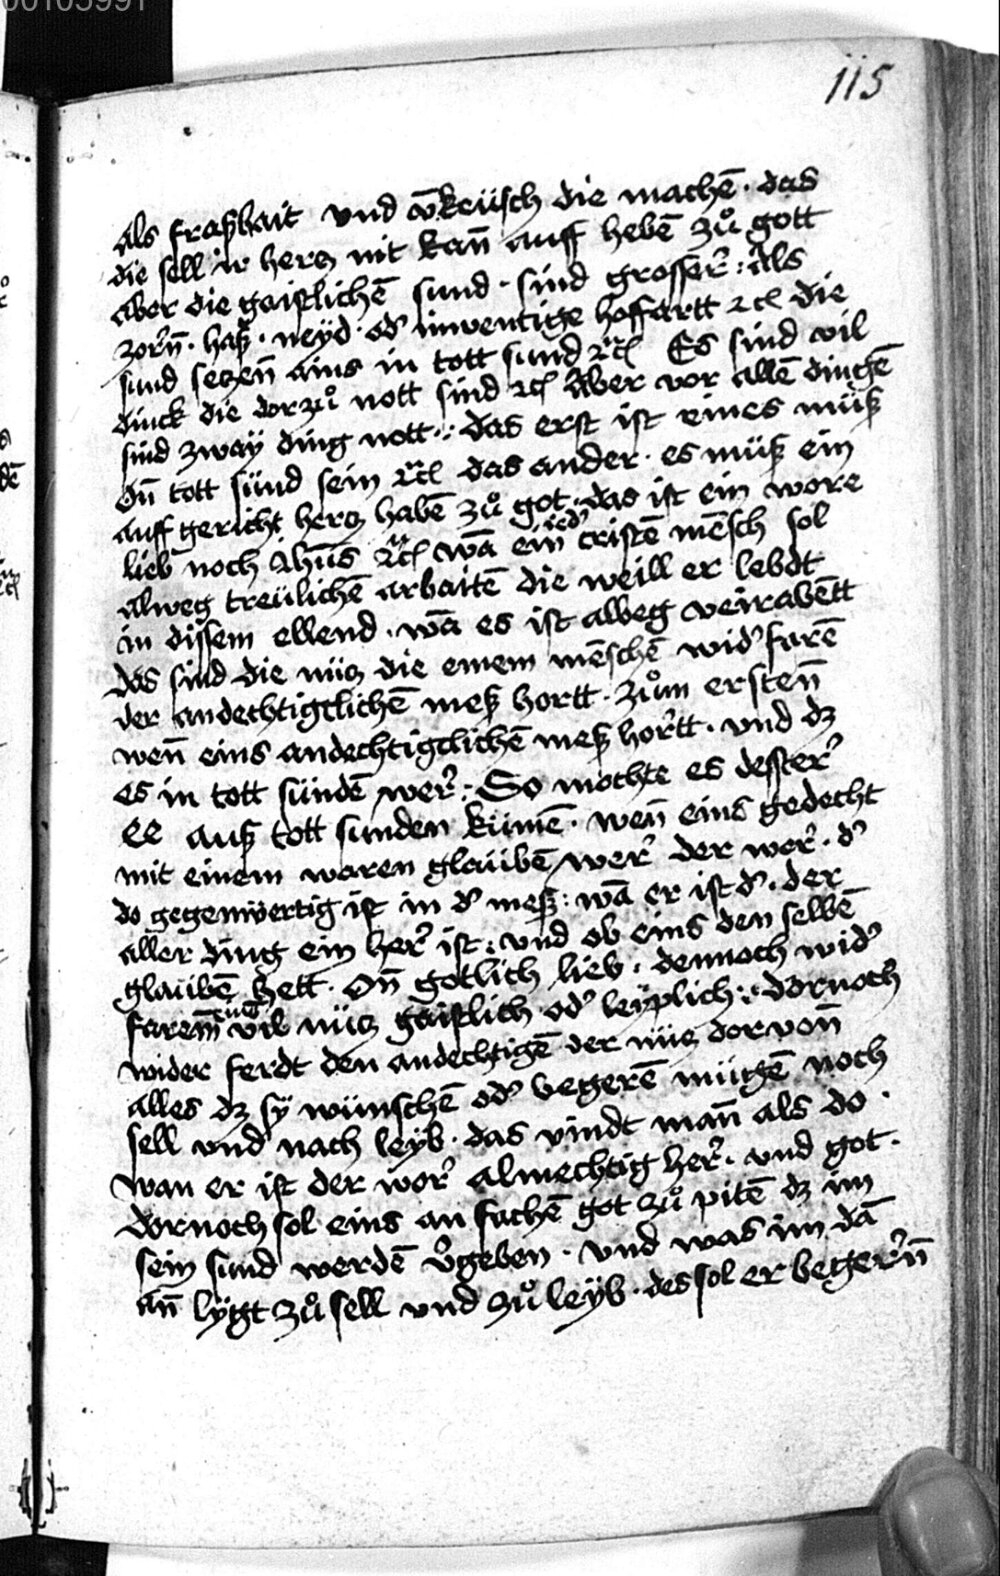 00105991
115
als fraßhait vnd vn̄keüsch die machē · das
die sell ir hercz nit kan̄ auff hebē zů gott
aber die gaistlichē sund · sind grosser᷑ : Als
zor᷑n̄ · haß · neÿd · od᷑ inwentige hoffartt ⁊c̄ die
sund seczen̄ ains in tott sund ⁊c̄ Es sind vil
dinck die dorzů nott sind ⁊c̄ Aber vor allē dingē
sind zwaÿ ding nott : das erst ist eines müß
on̄ tott sünd sein ⁊c̄ das ander · es müß ein
auff gericht hercz habē zů got · das ist ein wore
lieb noch ihūs ⁊c̄ wā ein ied᷑ cristē mēsch sol
alweg treülichē arbaitē die weill er lebdt
in dissem ellend · wā es ist alweg veirabētt
das sind die nücz die einem mēschē wid᷑ farē
der andechtigclichē meß hortt · zům ersten̄
wen̄ eins andechtigclichē meß hor᷑tt · vnd dz
es in tott sündē wer᷑ : So mochte es dester᷑
ee auß tott sunden kumē · wen̄ eins gedecht
mit einem woren glaübē wer᷑ der wer᷑ · d᷑
do gegenwertig ist in d᷑ meß : wā er ist d᷑ · der
aller ding ein her᷑ ist : vnd ob eins den selbē
glaübē hett · on̄ gotlich lieb · dennoch wid᷑
faren̄ vil nücz gaistlich od᷑ leÿplich : dornoch
wider ferdt den andechtigē der nücz dorvon̄
alles dz sÿ wünschē od᷑ begerē mügē noch
sell vnd nach leÿb · das vindt man̄ als do ·
wan er ist der wor᷑ almechtig her᷑ · vnd got ·
dornoch sol eins an fachē got zů pitē dz im
sein sund werdē v᷑geben · vnd was im dā
an̄ lÿgt zů sell vnd zů leÿb · des sol er beger᷑n̄